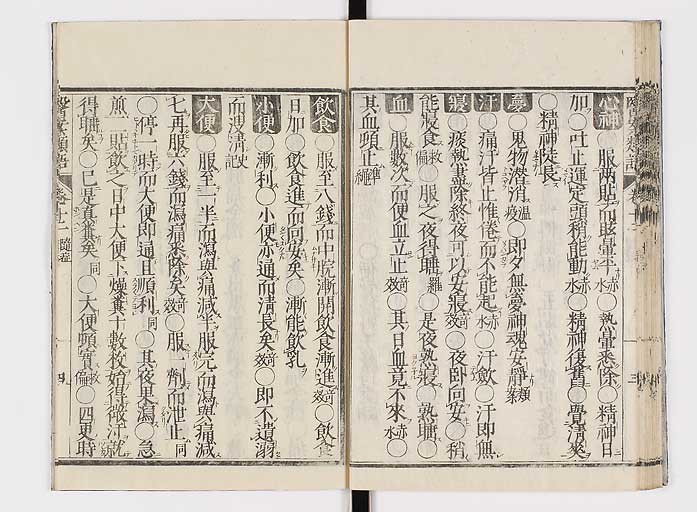 心神 ○服兩貼而眩暈平赤水○熱暈悉除○精神日
加○吐止運定頭稍能動赤水○精神復舊○覺清爽
○精神徒長
夢 ○鬼物潜消温疫○即夕無憂神魂安靜類案
汗 ○痛汗皆止惟倦而不能起赤水○汗歛○汗即無
寢 ○痰熱盡除終夜可以安寢奇效○夜即回安○稍
能寢食救偏○服之夜得睡○是夜熟寢○熟睡○
血 ○服數次而便血立止奇效○其日血竟不來赤水○
其血頓止準繩
飲食 ○服至八錢而中脘漸開飲食漸進奇效○飲食
日加○飲食進而回安矣○漸能飲乳
小便 ○漸利○小便亦通而清長矣奇效○即不遺溺
而溲清史記
大便 ○服至一半而瀉與痛減半服完而瀉與痛減
七再服六錢而瀉痛悉除矣奇效○服一劑而泄止同
○停一時而大便即通且順利同○其夜果瀉○急
煎一貼飲之日中大便下燥糞十數枚始得微汗就
得睡矣○已是真糞矣同○大便頓實救偏○四更時
醫案類語 卷十二 隨症